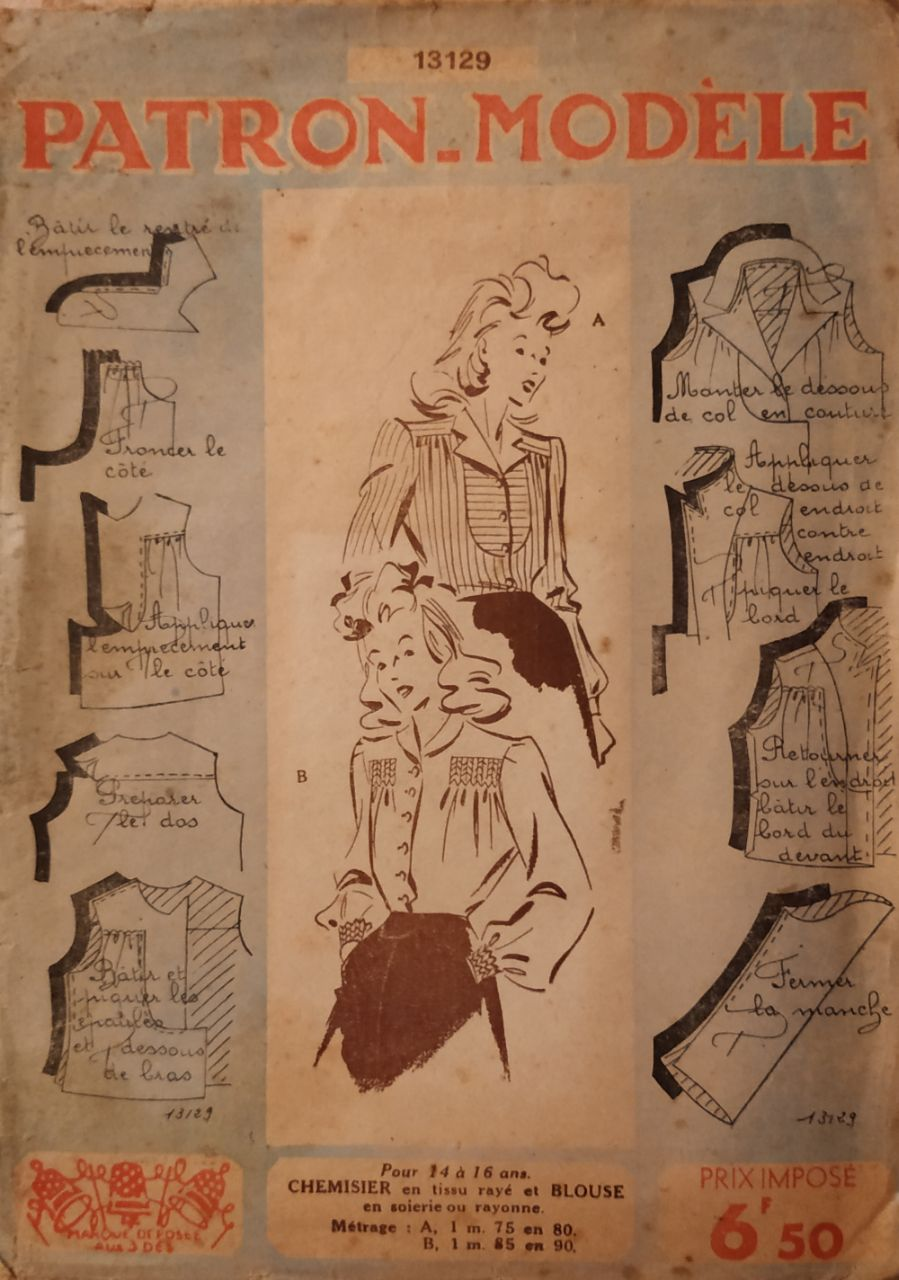 13129
PATRON-MODÈLE
Bâtir le rentré de
l'empiecement
Froncer le
côté
Appliquer
l'empiecement
sur le côté
Préparer
le dos
Bâtir et
piquer les
epaules
et dessous
de bras
13129
A
B
Monter le dessous
de col en couture
Appliquer
le dessus de
col endroit
contre
endroit
piquer le
bord
Retourner
sur l'endroit
bâtir le
bord du
devant
Fermer
la manche
13129
MARQUE DEPOSÉE
AUX 3 DÉS
Pour 14 à 16 ans.
CHEMISIER en tissu rayé et BLOUSE
en soierie ou rayonne.
Métrage : A, 1 m. 75 en 80.
B, 1 m. 85 en 90.
PRIX IMPOSÉ
6F 50